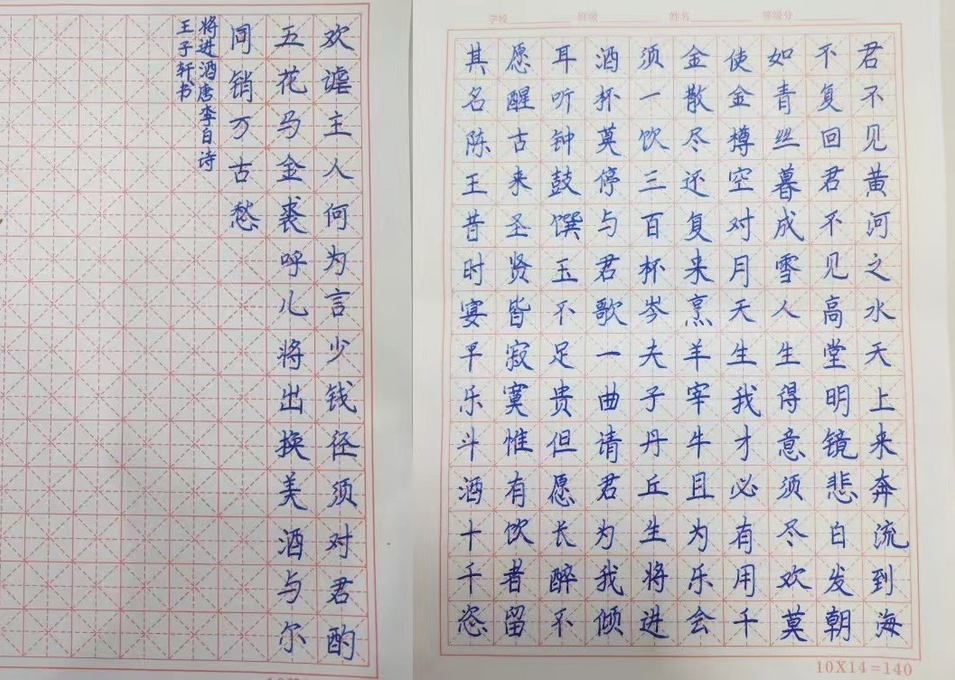 学校 班级 姓名 等级分
君不见黄河之水天上来奔流到海
不复回君不见高堂明镜悲白发朝
如青丝暮成雪人生得意须尽欢莫
使金樽空对月天生我才必有用千
金散尽还复来烹羊宰牛且为乐会
须一饮三百杯岑夫子丹丘生将进
酒杯莫停与君歌一曲请君为我倾
耳听钟鼓馔玉不足贵但愿长醉不
愿醒古来圣贤皆寂寞惟有饮者留
其名陈王昔时宴早乐斗酒十千恣
10X14=140
欢谑主人何为言少钱径须对君酌
五花马金裘呼儿将出换美酒与尔
同销万古愁
将进酒唐李白诗
王子轩书